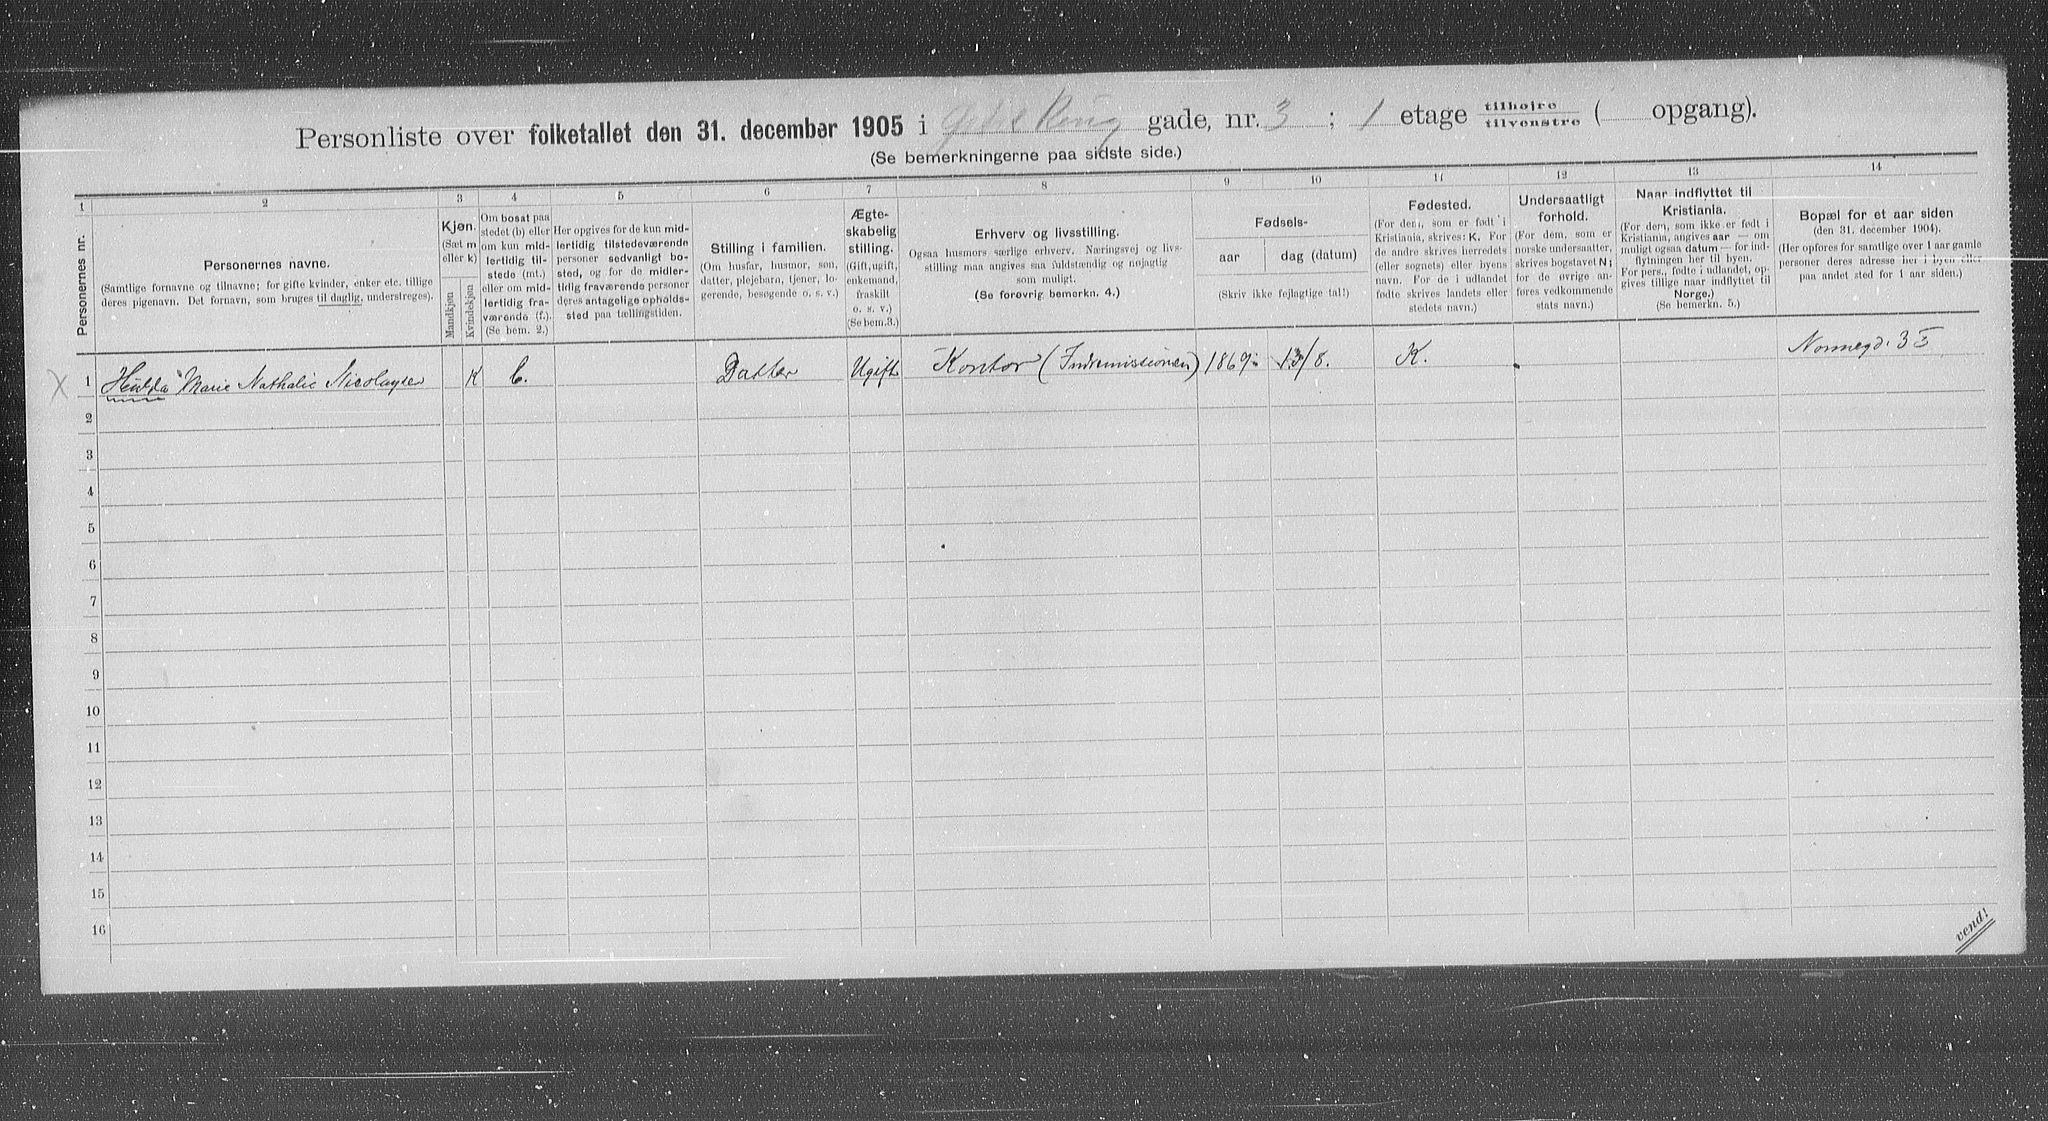 Personliste over folketallet den 31. december 1905 i Ring gade, nr. 3 ; 1 etage tilhøjre / tilvenstre ( opgang).
(Se bemerkningerne paa sidste side.)
1 2 3 4 5 6 7 8 9 10 11 12 13 14
Personernes nr.
Personernes navne.
(Samtlige fornavne og tilnavne; for gifte kvinder, enker etc. tillige
deres pigenavn. Det fornavn, som bruges til daglig, understreges).
Kjøn.
(Sæt m
eller k)
Mandkjøn
Kvindekjøn
Om bosat paa
stedet (b) eller
om kun mid-
lertidig til-
stede (mt.)
eller om mid-
lertidig fra-
værende (f.).
(Se bem. 2.)
Her opgives for de kun mid-
lertidig tilstedeværende
personer sedvanligt bo-
sted, og for de midler-
tidig fraværende personer
deres antagelige opholds-
sted paa tællingstiden.
Stilling i familien.
(Om husfar, husmor, søn,
datter, plejebarn, tjener, lo-
gerende, besøgende o. s. v.)
Ægte-
skabelig
stilling.
(Gift, ugift,
enkemand,
fraskilt
o. s. v.)
(Se bem. 3.)
Erhverv og livsstilling.
Ogsaa husmors særlige erhverv. Næringsvej og livs-
stilling maa angives saa fuldstændig og nøjagtig
som muligt.
(Se forøvrig bemerkn. 4.)
Fødsels-
aar
dag (datum)
(Skriv ikke fejlagtige tal!)
Fødested.
(For dem, som er født i
Kristiania, skrives: K. For
de andre skrives herredets
(eller sognets) eller byens
navn. For de i udlandet
fødte skrives landets eller
stedets navn.)
Undersaatligt
forhold.
(For dem, som er
norske undersaatter,
skrives bogstavet N;
for de øvrige an-
føres vedkommende
stats navn.)
Naar indflyttet til
Kristiania.
(For dem, som ikke er født i
Kristiania, angives aar — om
muligt ogsaa datum — for ind-
flytningen her til byen.
For pers., fødte i udlandet, op-
gives tillige naar indflyttet til
Norge.)
(Se bemerkn. 5.)
Bopæl for et aar siden
(den 31. december 1904).
(Her opføres for samtlige over 1 aar gamle
personer deres adresse her i byen eller
paa andet sted for 1 aar siden.)
X 1 Hulda Marie Nathalie Nicolaysen K b. Datter Ugift Kontor (Indremissionen) 1869 13/8. K. Nonnegd. 3 I
2
3
4
5
6
7
8
9
10
11
12
13
14
15
16
vend!